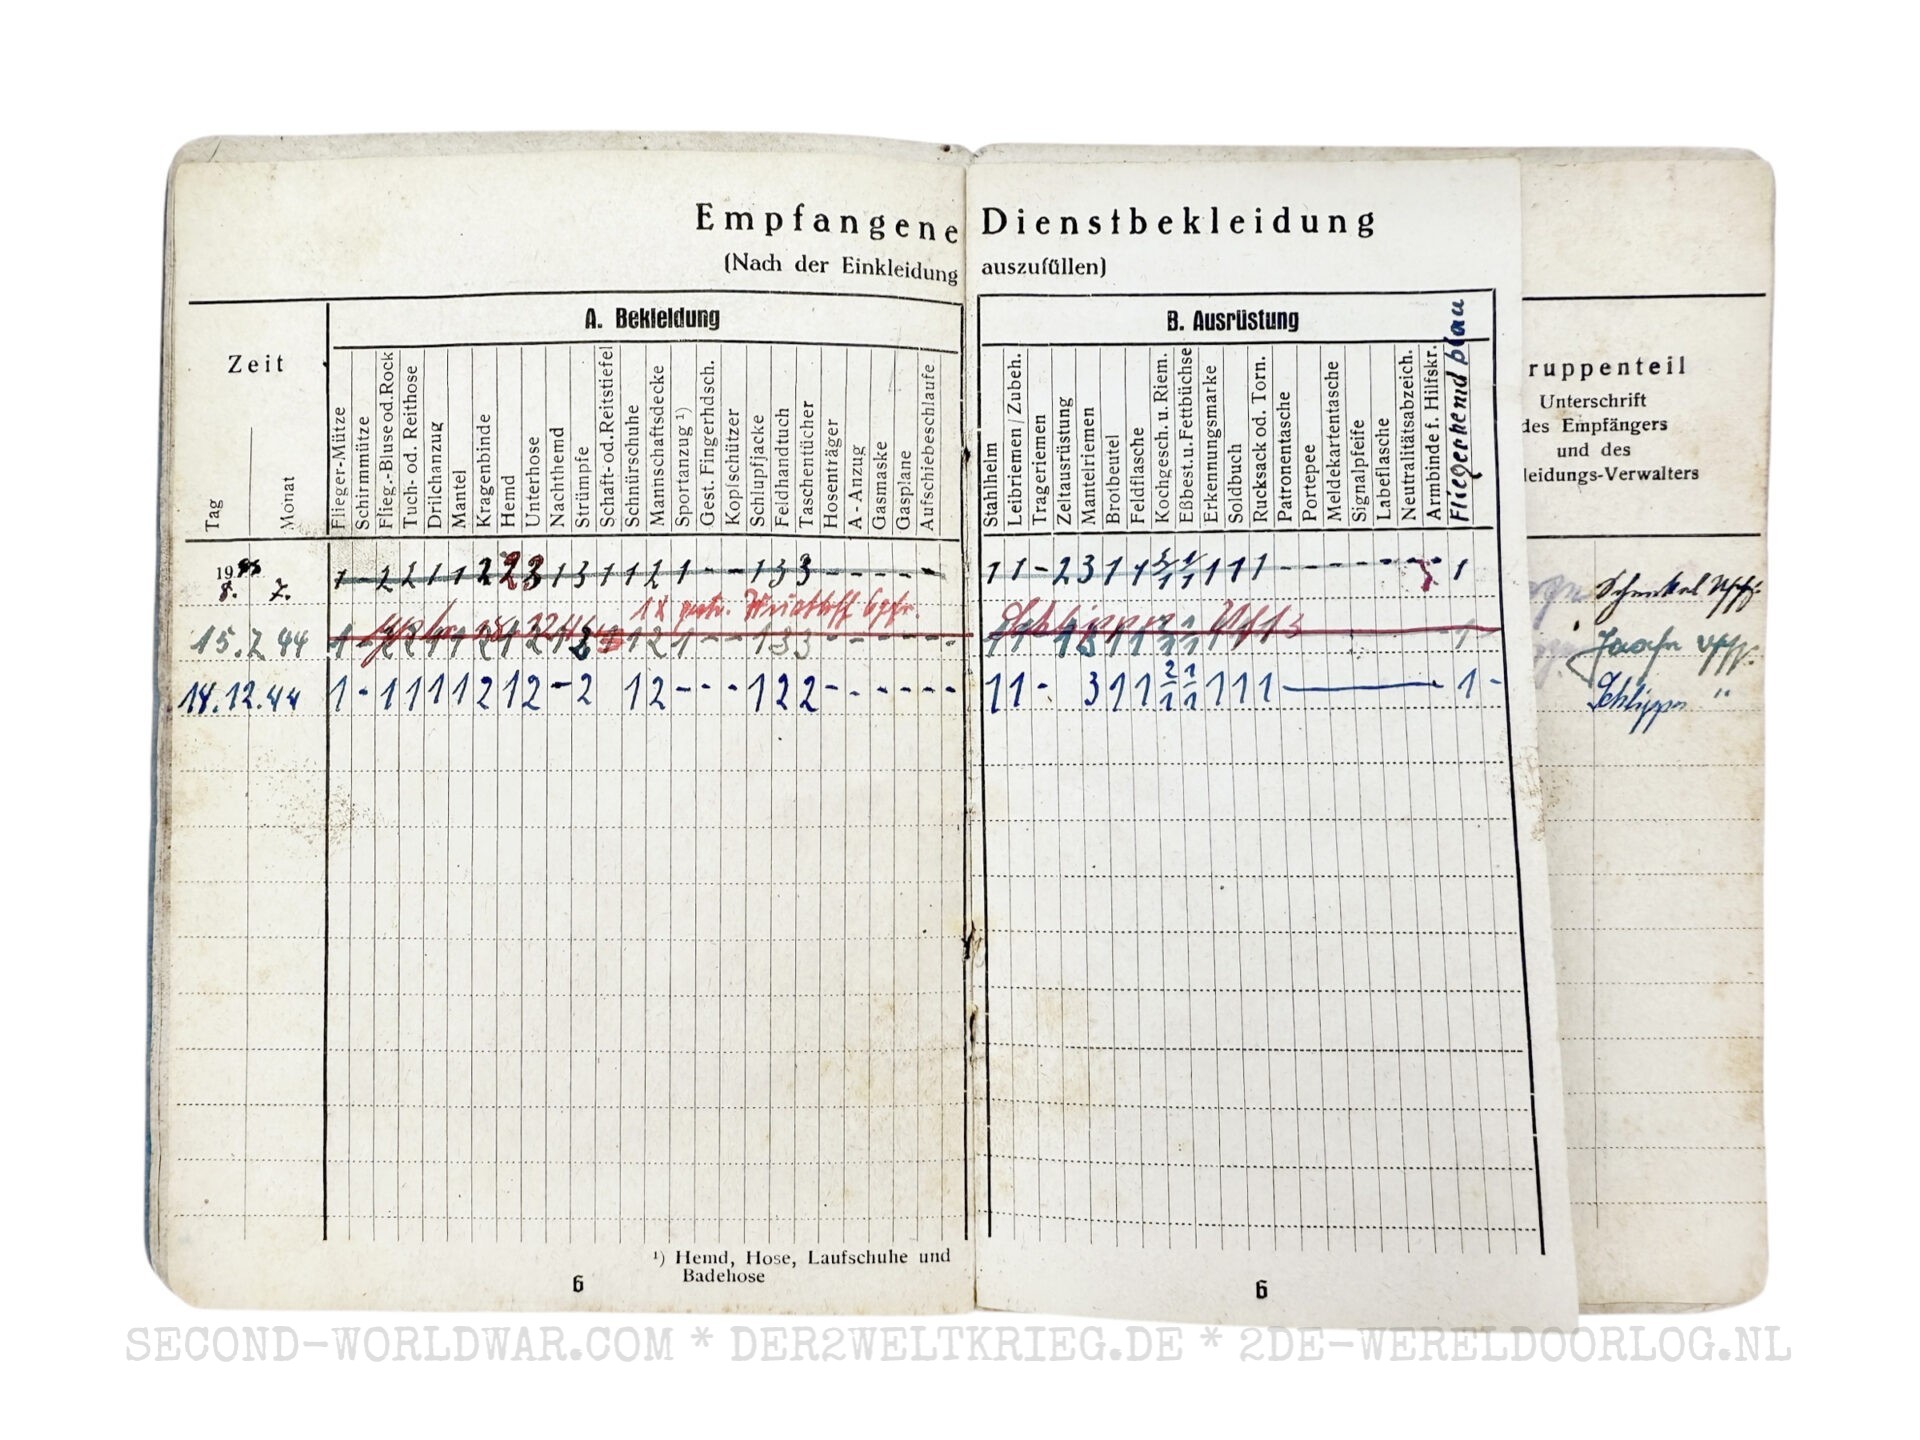 Empfangene Dienstbekleidung
(Nach der Einkleidung auszufüllen)
Zeit
Tag
Monat
A. Bekleidung
Flieger-Mütze
Schirmmütze
Flieg.-Bluse od. Rock
Tuch- od. Reithose
Drilchanzug
Mantel
Kragenbinde
Hemd
Unterhose
Nachthemd
Strümpfe
Schaft- od. Reitstiefel
Schnürschuhe
Mannschaftsdecke
Sportanzug ¹)
Gest. Fingerhdsch.
Kopfschützer
Schlupfjacke
Feldhandtuch
Taschentücher
Hosenträger
A-Anzug
Gasmaske
Gasplane
Aufschiebeschlaufe
B. Ausrüstung
Stahlhelm
Leibriemen/Zubeh.
Trageriemen
Zeltausrüstung
Mantelriemen
Brotbeutel
Feldflasche
Kochgesch. u. Riem.
Eßbest. u. Fettbüchse
Erkennungsmarke
Soldbuch
Rucksack od. Torn.
Patronentasche
Portepee
Meldekartentasche
Signalpfeife
Labeflasche
Neutralitätsabzeich.
Armbinde f. Hilfskr.
Fliegerhemd blau
ruppenteil
Unterschrift
des Empfängers
und des
leidungs-Verwalters
19
8. 7. 1 - 2 2 1 1 2 2 3 1 3 1 1 2 1 - - 1 3 3 - - - - - 1 1 - 2 3 1 1 1 1 1 1
15. 7 44 1 - 1 2 1 - - 1 3 3
14.12.44 1 - 1 1 1 1 2 1 2 - 2 1 2 - - - 1 2 2 - - - - - - 1 1 - 3 1 1 2/1 1/1 1 1 1 — 1 - Schlipper "
¹) Hemd, Hose, Laufschuhe und
Badehose
6
6
SECOND-WORLDWAR.COM * DER2WELTKRIEG.DE * 2DE-WERELDOORLOG.NL